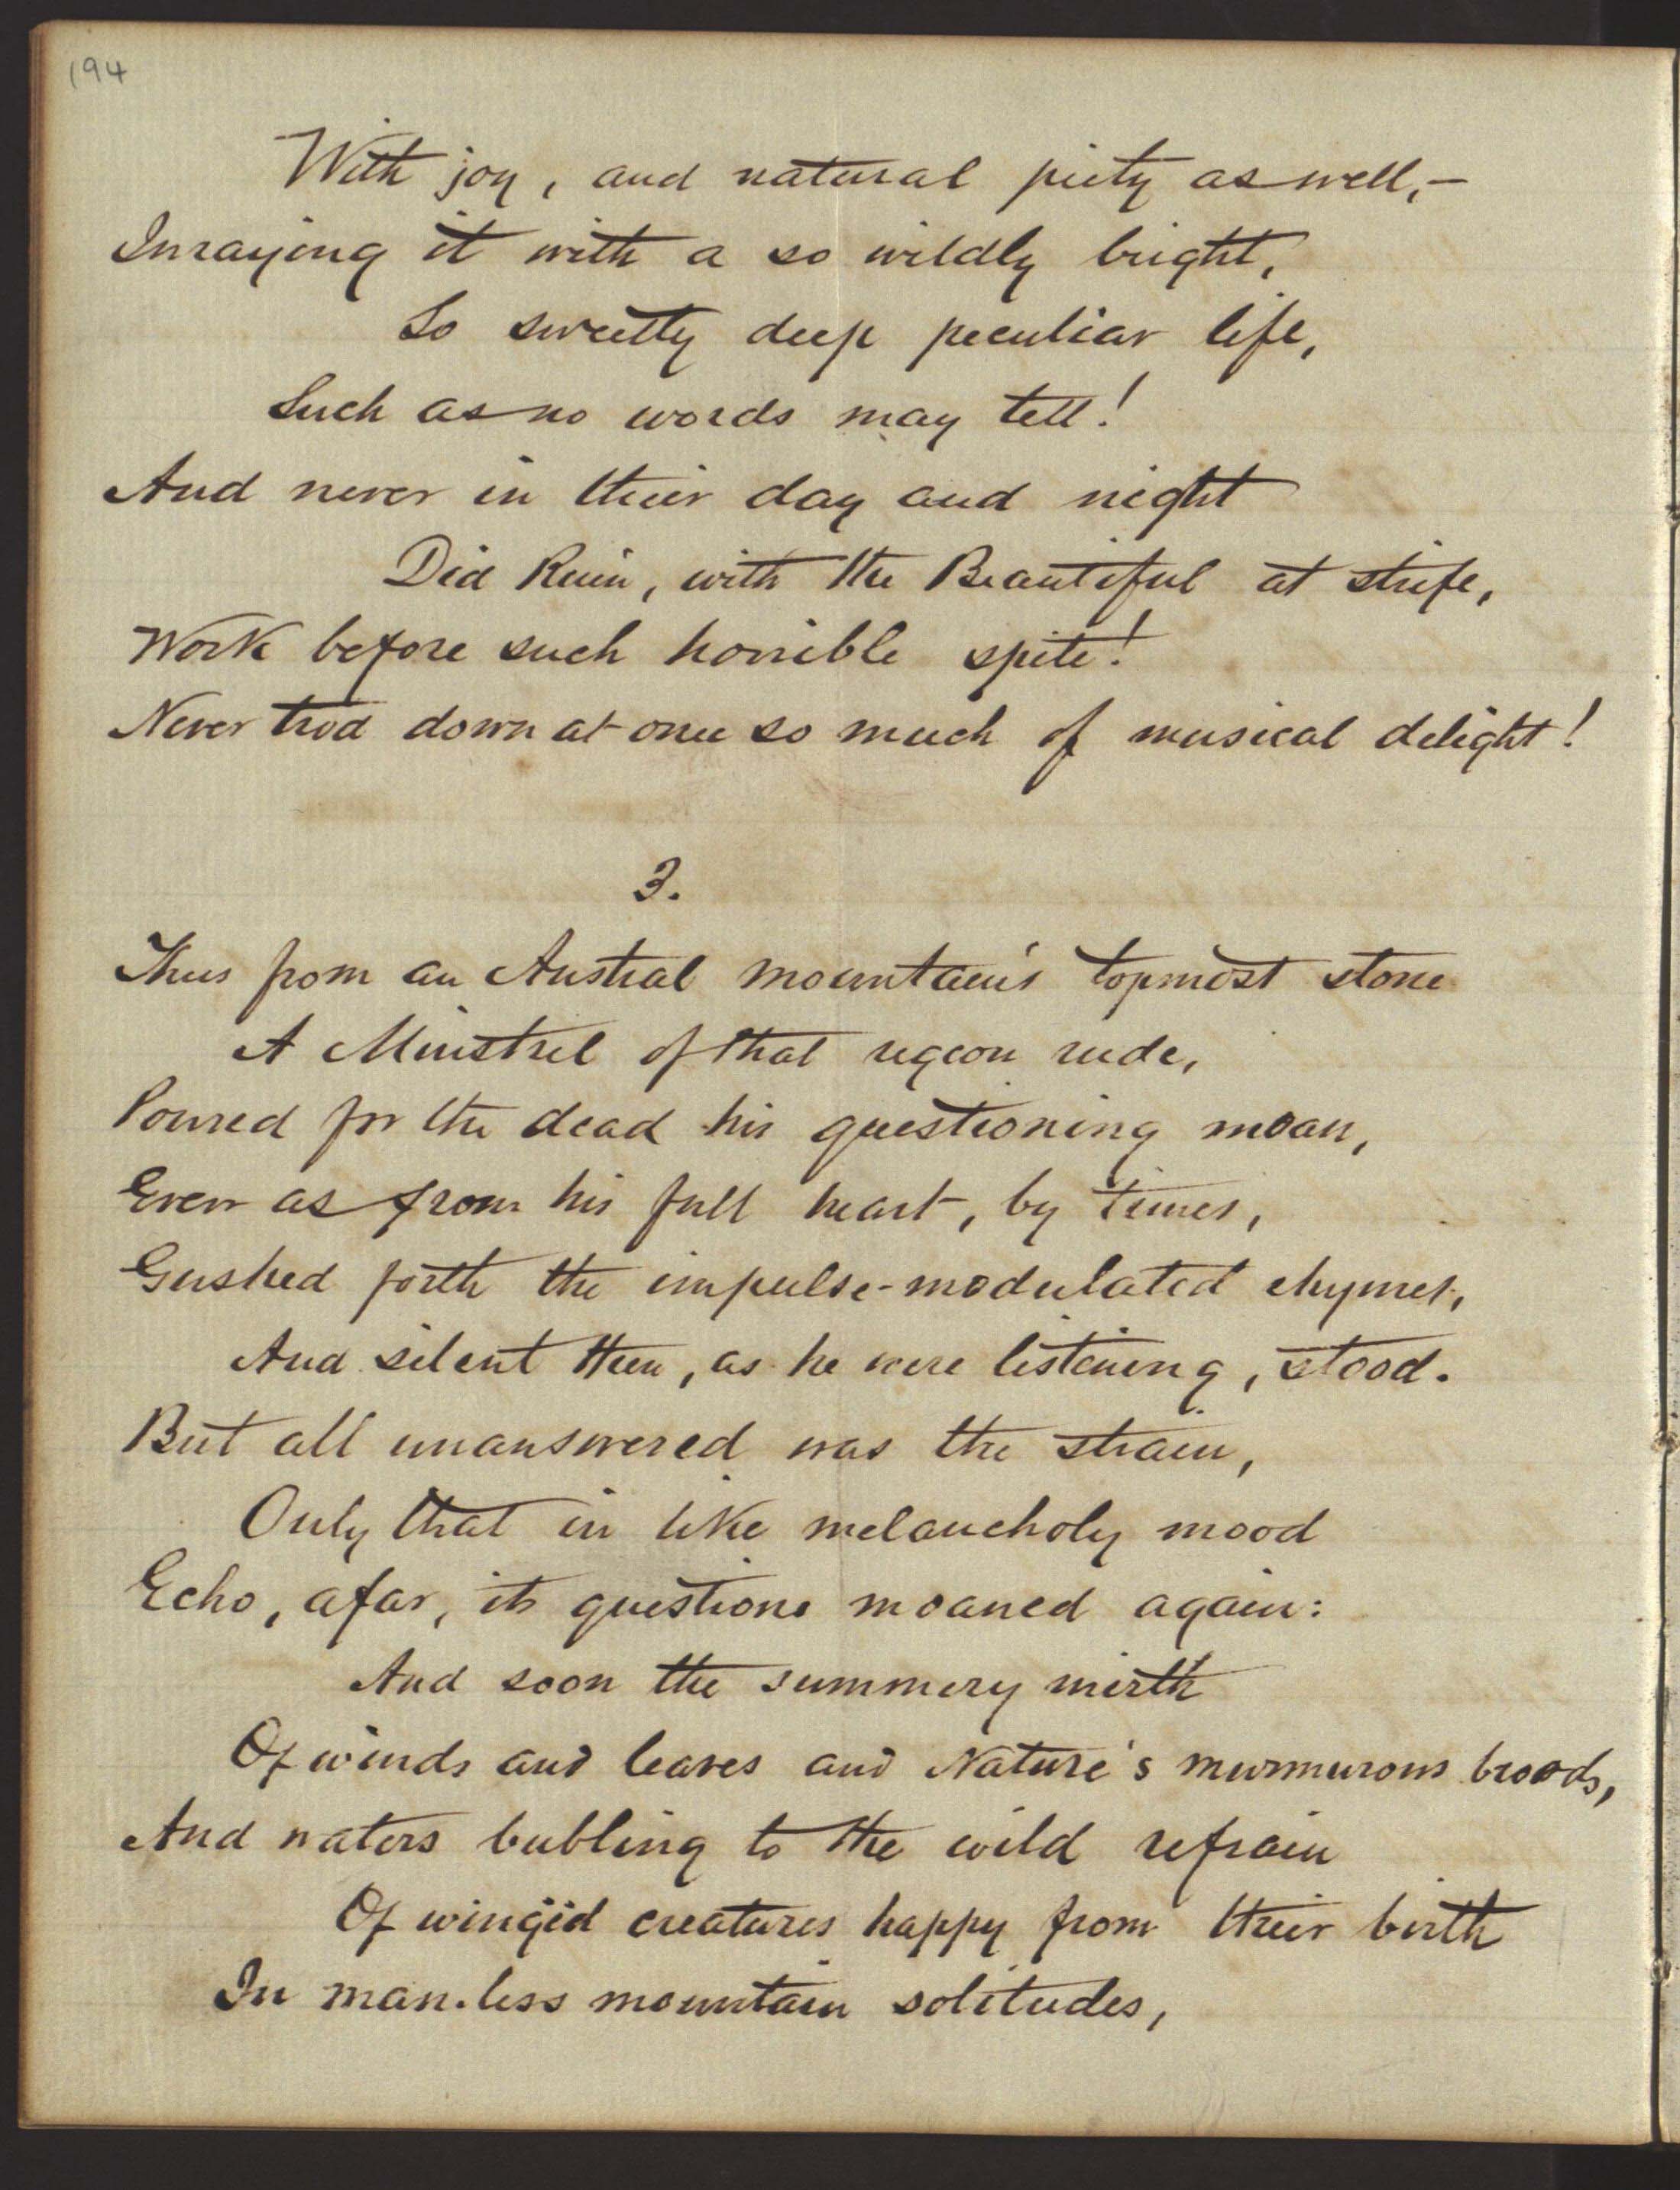 194
With joy, and natural piety as well,-
Inraying it with a so wildly bright,
So sweetly deep peculiar life,
Such as no words may tell!
And never in their day and night
Did Ruin, with the Beautiful at strife,
Work before such horrible spite!
Never trod down at once so much of musical delight!
3.
Thus from an Austral mountain's topmost stone
A Minstrel of that region rude,
Poured for the dead his questioning moan,
Even as from his full heart, by times,
Gushed forth the impulse-modulated rhymes,
And silent then, as he were listening, stood.
But all unanswered was the strain,
Only that in like melancholy mood
Echo, afar, its questions moaned again:
And soon the summery mirth
Of winds and leaves and Nature's murmurous broods,
And waters bubling to the wild refrain
Of wingéd creatures happy from their birth
In man-less mountain solitudes,